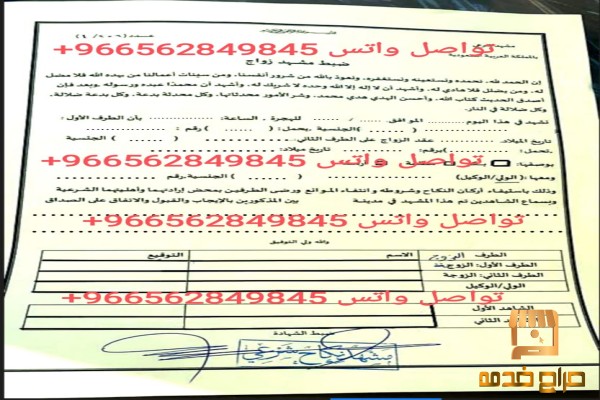 عدد(٤/٩٠٦)
تواصل واتس 966562849845+
بالمملكة العربية السعودية
ضبط مشهد زواج
إن الحمد لله، نحمده ونستعينه ونستغفره، ونعوذ بالله من شرور أنفسنا، ومن سيئات أعمالنا من يهده الله فلا مضل
له، ومن يضلل فلا هادي له، وأشهد أن لا إله إلا الله وحده لا شريك له، وأشهد أن محمدًا عبده ورسوله، وبعد فإن
أصدق الحديث كتاب الله، وأحسن الهدي هدي محمد، وشر الأمور محدثاتها، وكل محدثة بدعة، وكل بدعة ضلالة،
وكل ضلالة في النار.
نشهد في هذا اليوم ...... الموافق .../.../...... للهجرة , الساعة: ...... بأن الطرف الأول:
تاريخ الميلاد. ...... عقد الزواج على الطرف الثاني ...... (الجنسية
تواصل واتس 966562849845+
بوصفها:
ومعها: (الولي/الوكيل) ...... (الجنسية. رقم
وذلك باستيفاء أركان النكاح وشروطه و انتفاء الموانع ورضى الطرفين بمحض إرادتهما وأهليتهما الشرعية
وبسماع الشاهدين تم هذا المشهد في مدينة ...... بين المذكورين بالإيجاب والقبول والاتفاق على الصداق
تواصل واتس 966562849845+
والله ولي التوفيق
الطرف الزوج الاسم التوقيع
الطرف الأول: الزوج
الطرف الثاني: الزوجة
الولي/الوكيل
تواصل واتس 966562849845+
الشاهد الأول
الثاني
ضبط الشهادة
مشهد نكاح شرعي
حراج خدمة